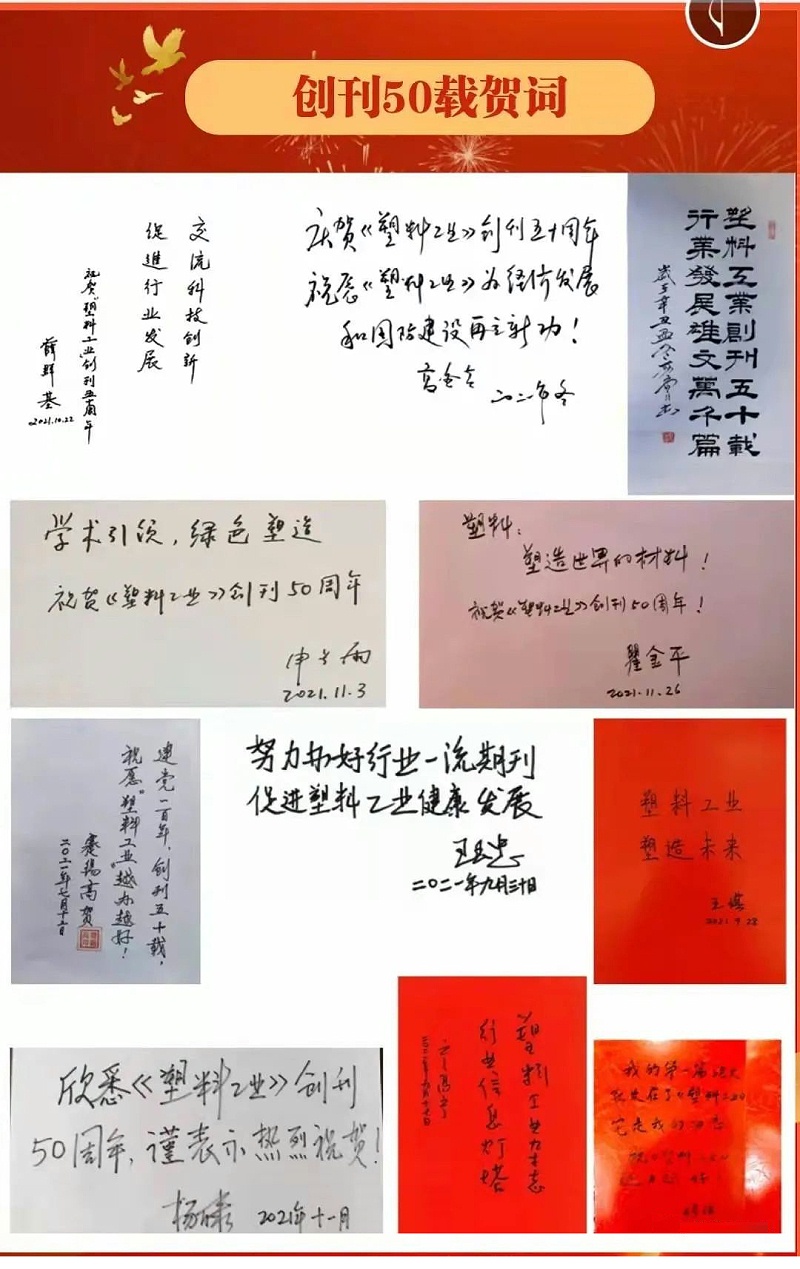 创刊50载贺词
交流科技创新
促進行业发展
祝贺"塑料工业"创刊五十周年
薛群基
2021.10.22
庆贺《塑料工业》创刊五十周年
祝愿《塑料工业》为经济发展
和国防建设再立新功！
二〇二一年冬
塑料工業創刊五十载
行業發展雄文萬千篇
学术引领，绿色塑造
祝贺《塑料工业》创刊50周年
2021.11.3
塑料：
塑造世界的材料！
祝贺《塑料工业》创刊50周年！
瞿金平
2021.11.26
建党一百年，创刊五十载，
祝愿"塑料工业"越办越好！
蹇锡高贺
二〇二一年七月十二日
努力办好行业一流期刊
促进塑料工业健康发展
王玉忠
二〇二一年九月三十日
塑料工业
塑造未来
王琪
2021.9.28
欣悉《塑料工业》创刊
50周年，谨表示热烈祝贺！
2021年十一月
塑料工业
行业信息灯塔
我的第一篇论文